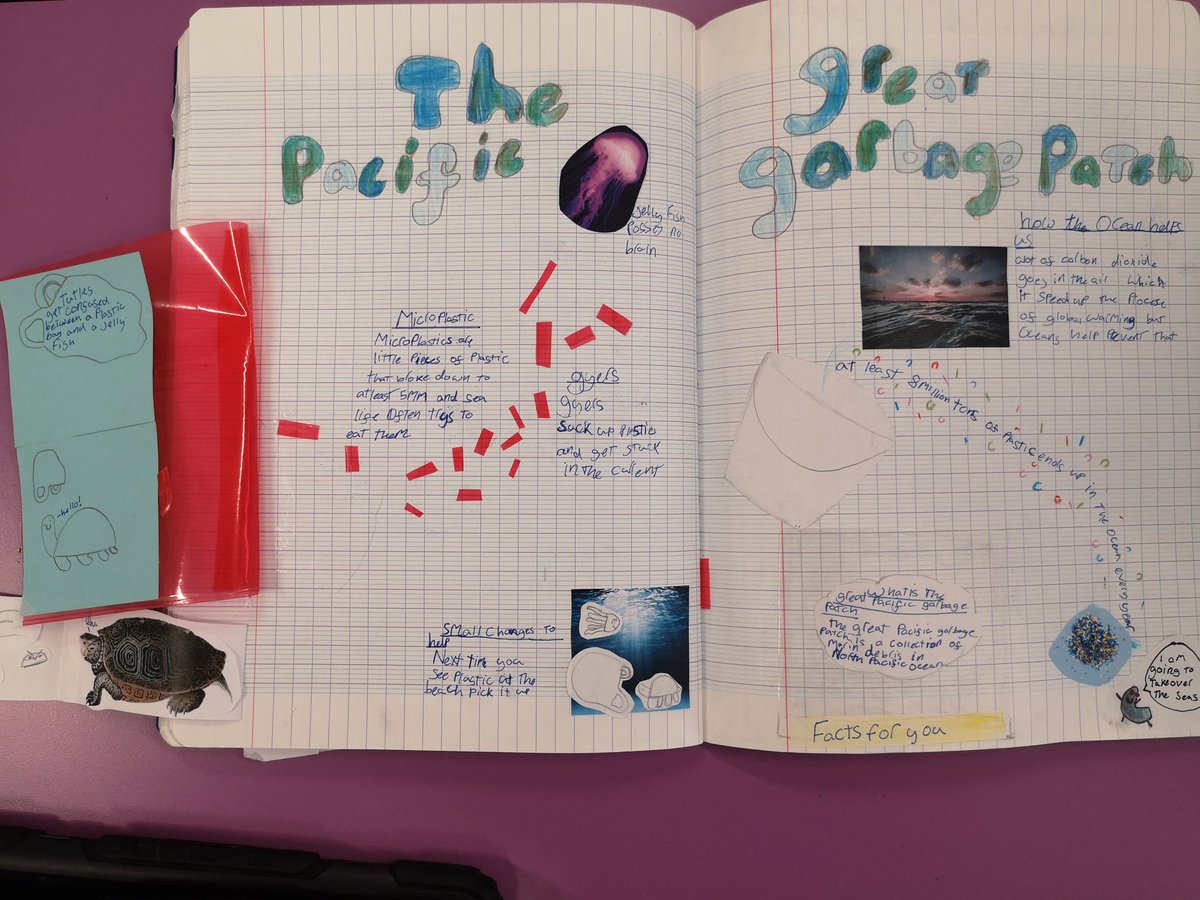 The
Pacific
great
garbage Patch
Jelly Fish
Posses no
brain
Tutles
get confused
between a Plastic
bag and a Jelly
Fish
hello!
MicroPlastic
MicroPlastics are
little Pieces of Plastic
that broke down to
atleast 5MM and sea
life Often trys to
eat them
gyers
gyers
Suck up Plastic
and get stuck
in the current
Small Changes to
help
Next time you
See Plastic at the
beach pick it up
how the Ocean helps
us
alot of carbon dioxide
goes in the air which
it speed up the Process
of global warming but
Oceans help Prevent that
at least 8million tons of Plastic ends up in The ocean every year
What is the
great Pacific garbage
Patch
the great Pacific garbage
Patch is a collection of
Marin debris in
North Pacific Ocean
I am
going to
Takeover
The Seas
Facts for you